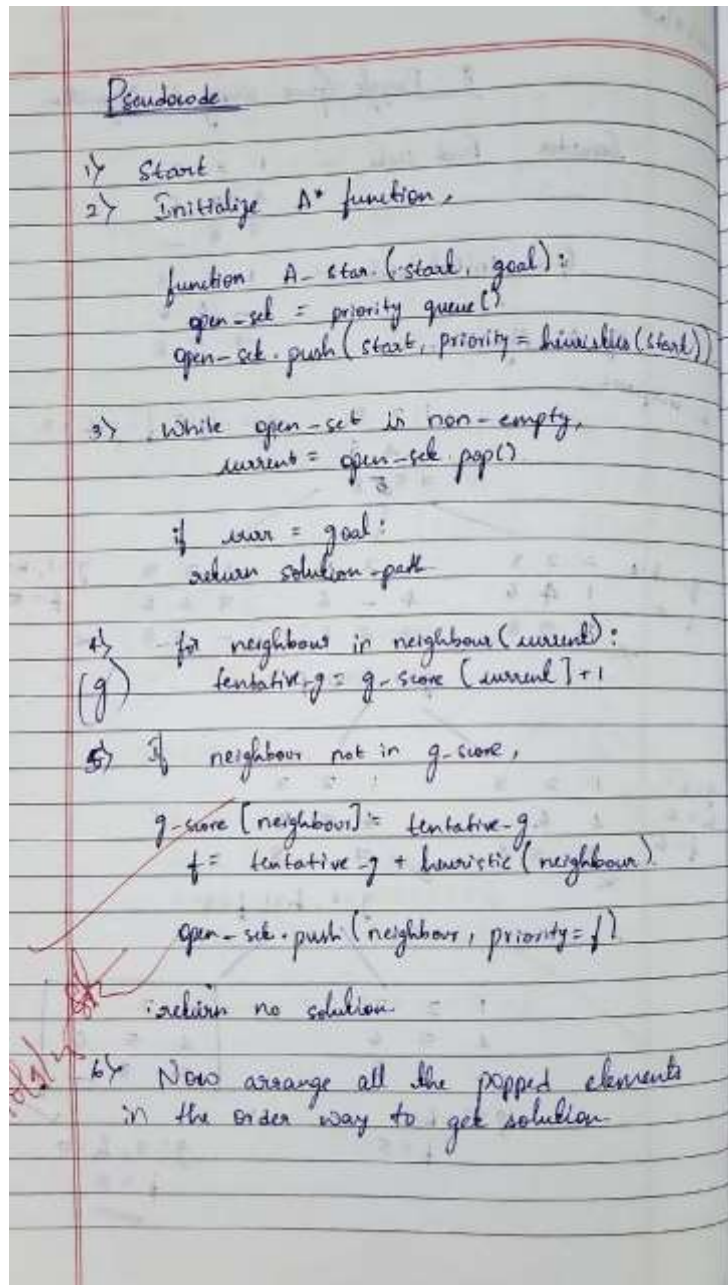 Pseudocode
1) Start
2) Initialize A* function,
function A-star (start, goal):
open-set = priority queue()
open-set.push(start, priority = heuristics(start))
3) While open-set is non-empty,
current = open-set.pop()
if curr = goal:
return solution-path
4) for neighbour in neighbour(current):
(g) tentative-g = g-score [current] + 1
5) If neighbour not in g-score,
g-score [neighbour] = tentative-g
f = tentative-g + heuristic (neighbour)
open-set.push(neighbour, priority = f)
return no solution
6) Now arrange all the popped elements
in the order way to get solution